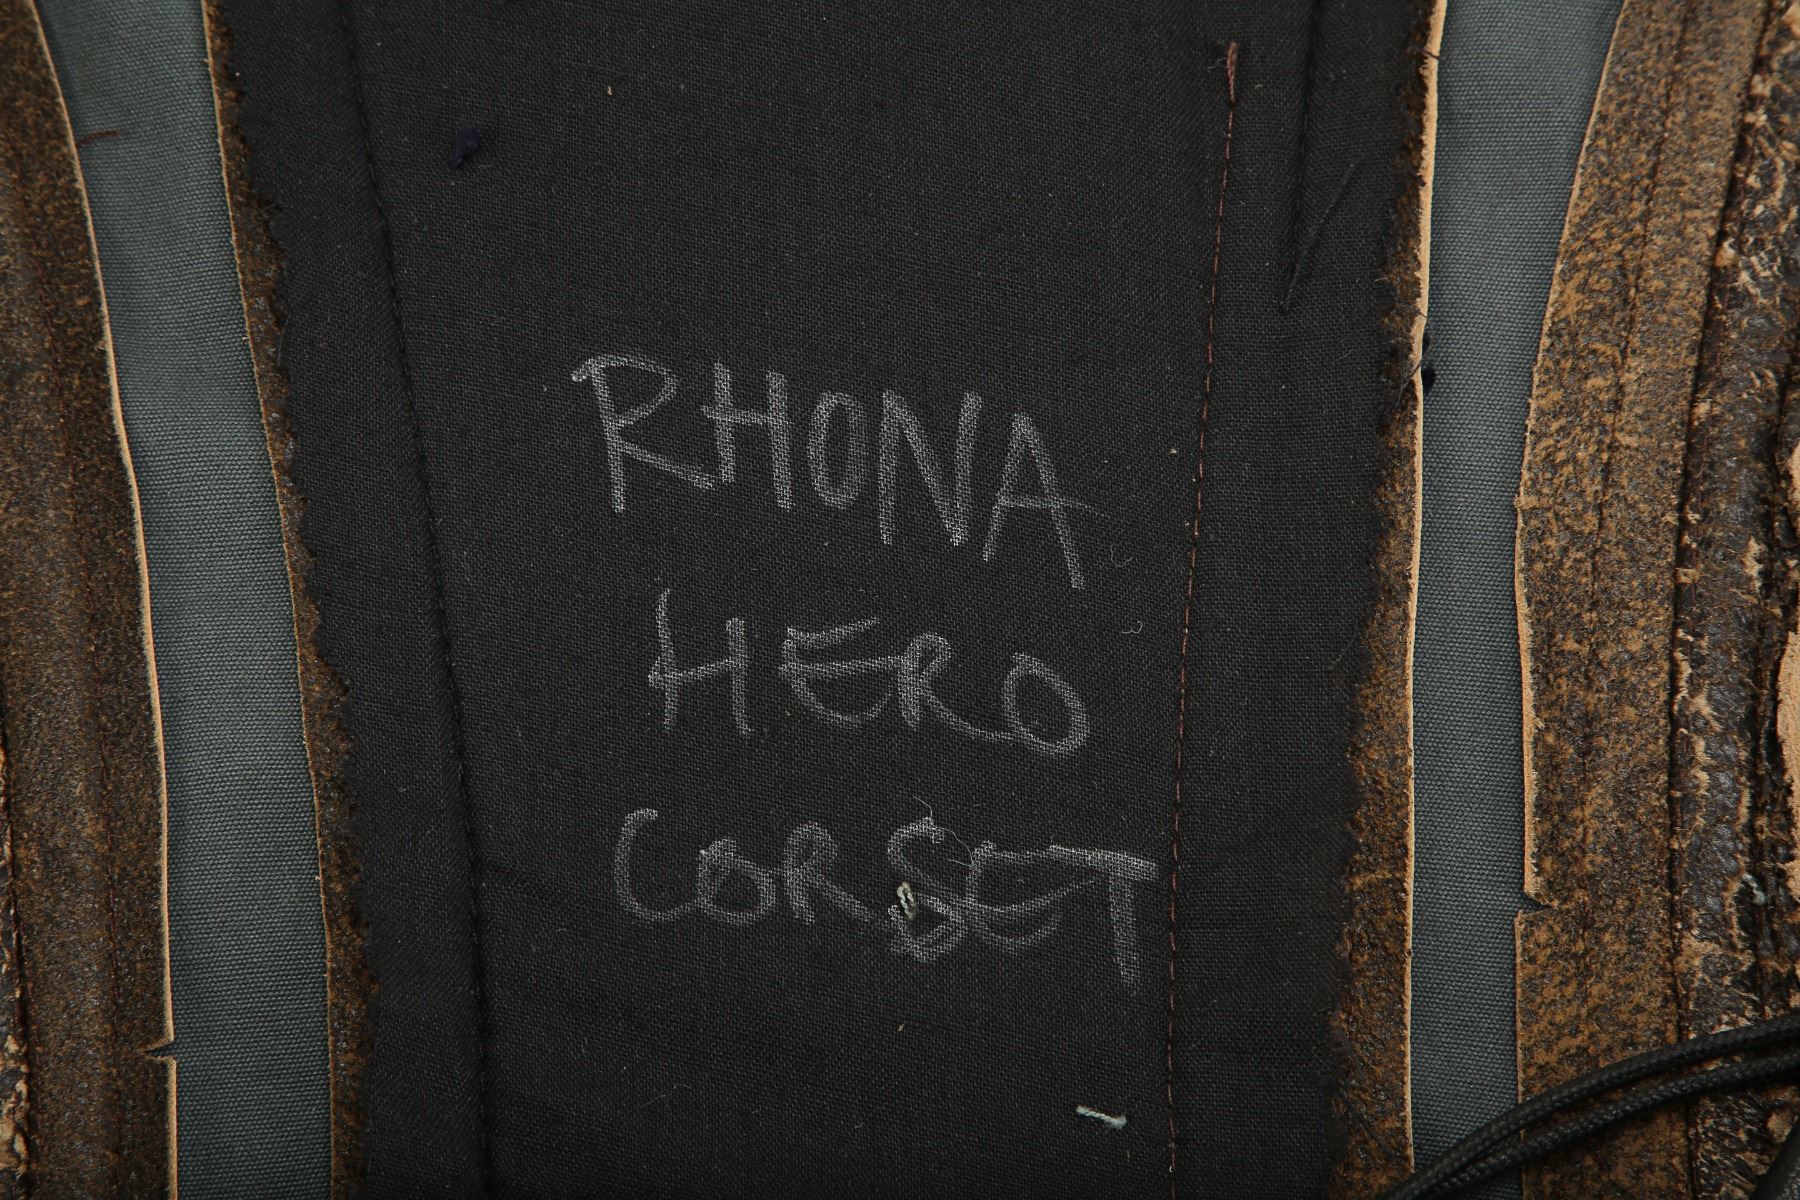 RHONA
HERO
CORSET